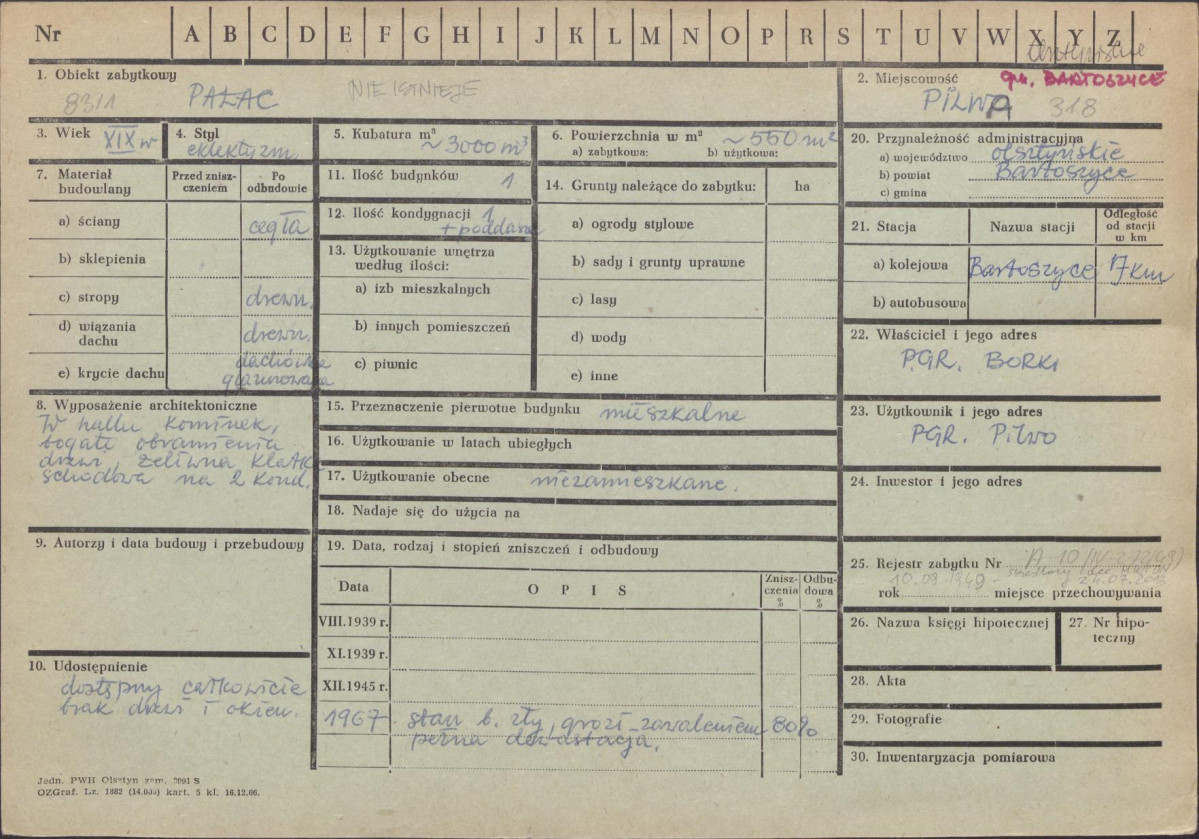 Nr A B C D E F G H I J K L M N O P R S T U V W X Y Z
1. Obiekt zabytkowy
8311 PAŁAC NIE ISTNIEJE
2. Miejscowość
gm. BARTOSZYCE
PILWA 318
3. Wiek XIX w
4. Styl
eklektyzm
5. Kubatura m³
~3000 m³
6. Powierzchnia w m² ~550 m²
a) zabytkowa: b) użytkowa:
7. Materiał budowlany
Przed znisz-
czeniem
Po
odbudowie
a) ściany cegła
b) sklepienia
c) stropy drewn.
d) wiązania
dachu drewn.
e) krycie dachu dachówka
glazurowana
8. Wyposażenie architektoniczne
W hallu kominek,
bogate obramienia
drzwi, żeliwna klatk
schodowa na 2 kond.
9. Autorzy i data budowy i przebudowy
10. Udostępnienie
dostępny całkowicie
brak drzwi i okien.
11. Ilość budynków 1
12. Ilość kondygnacji 1
+ poddasze
13. Użytkowanie wnętrza
według ilości:
a) izb mieszkalnych
b) innych pomieszczeń
c) piwnic
14. Grunty należące do zabytku: ha
a) ogrody stylowe
b) sady i grunty uprawne
c) lasy
d) wody
e) inne
15. Przeznaczenie pierwotne budynku mieszkalne
16. Użytkowanie w latach ubiegłych
17. Użytkowanie obecne niezamieszkane.
18. Nadaje się do użycia na
19. Data, rodzaj i stopień zniszczeń i odbudowy
Data O P I S
Znisz-
czenia
%
Odbu-
dowa
%
VIII.1939 r.
XI.1939 r.
XII.1945 r.
1967 stan b. zły, grozi zawaleniem 80%
pełna dewastacja.
20. Przynależność administracyjna
a) województwo olsztyńskie
b) powiat Bartoszyce
c) gmina
21. Stacja Nazwa stacji
Odległość
od stacji
w km
a) kolejowa Bartoszyce 7 km
b) autobusowa
22. Właściciel i jego adres
PGR. BORKI
23. Użytkownik i jego adres
PGR. Pilwo
24. Inwestor i jego adres
25. Rejestr zabytku Nr A-10
10.09.1949 -
rok miejsce przechowywania
26. Nazwa księgi hipotecznej
27. Nr hipo-
teczny
28. Akta
29. Fotografie
30. Inwentaryzacja pomiarowa
Jedn. PWH Olsztyn zam. 2091 S
OZGraf. Lz. 1882 (14.000) kart. 5 kl. 16.12.66.